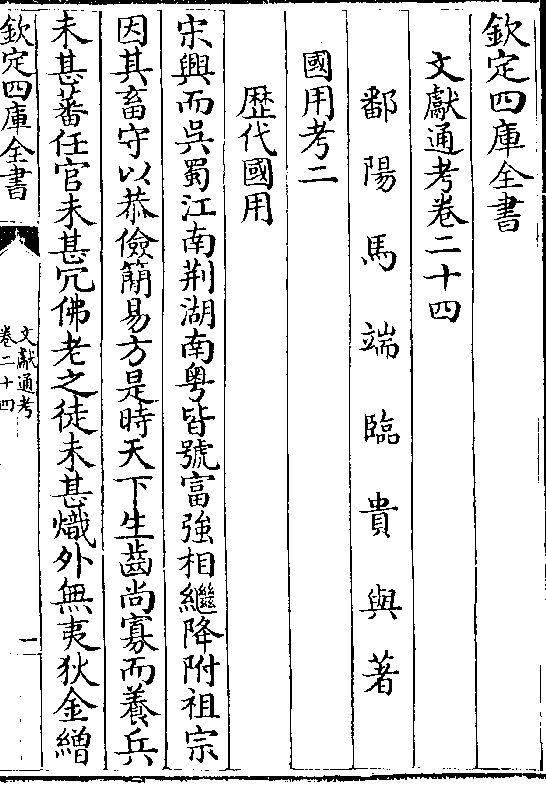 欽定四庫全書
文獻通考卷二十四
鄱陽馬端臨貴與著
國用考二
歴代國用
宋興而吳蜀江南荆湖南粤皆號富強相繼降附祖宗
因其畜守以恭儉簡易方是時天下生齒尚寡而養兵
未甚蕃任官未甚冗佛老之徒未甚熾外無夷狄金繒
欽定四庫全書
文獻通考
卷二十四
一